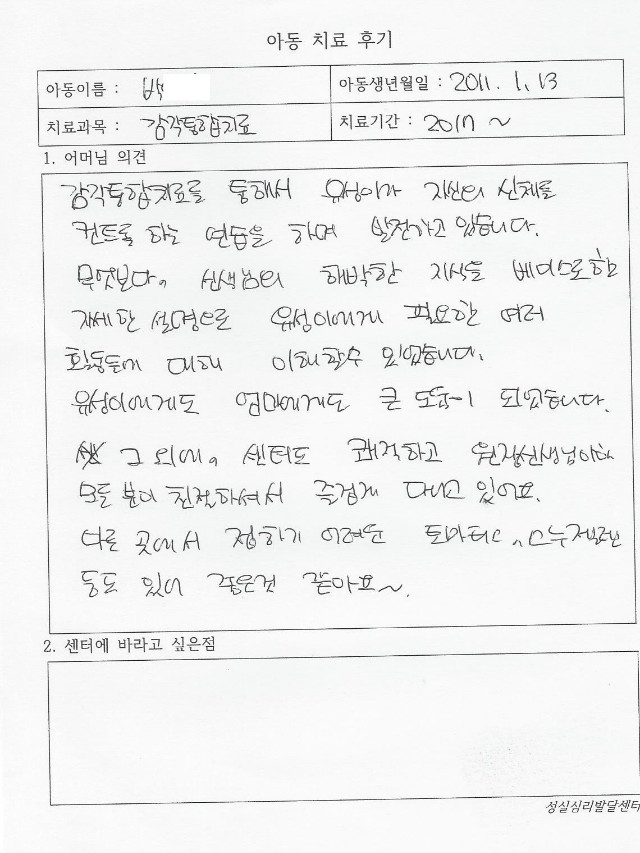 아동 치료 후기
아동이름 : 박
아동생년월일 : 2011. 1. 13
치료과목 : 감각통합치료
치료기간 : 2017 ~
1. 어머님 의견
감각통합치료를 통해서 유성이가 자신의 신체를
컨트롤 하는 연습을 하며 발전하고 있습니다.
무엇보다, 선생님의 해박한 지식을 베이스로 한
자세한 설명으로 유성이에게 필요한 여러
활동들에 대해 이해할수 있었습니다.
유성이에게도 엄마에게도 큰 도움이 되었습니다.
그 외에, 센터도 쾌적하고 원장선생님이하
모든 분이 친절하셔서 즐겁게 다니고 있어요.
다른 곳에서 접하기 어려운 토마티스, 스누젤렌
등도 있어 좋은것 같아요~.
2. 센터에 바라고 싶은점
성실심리발달센터